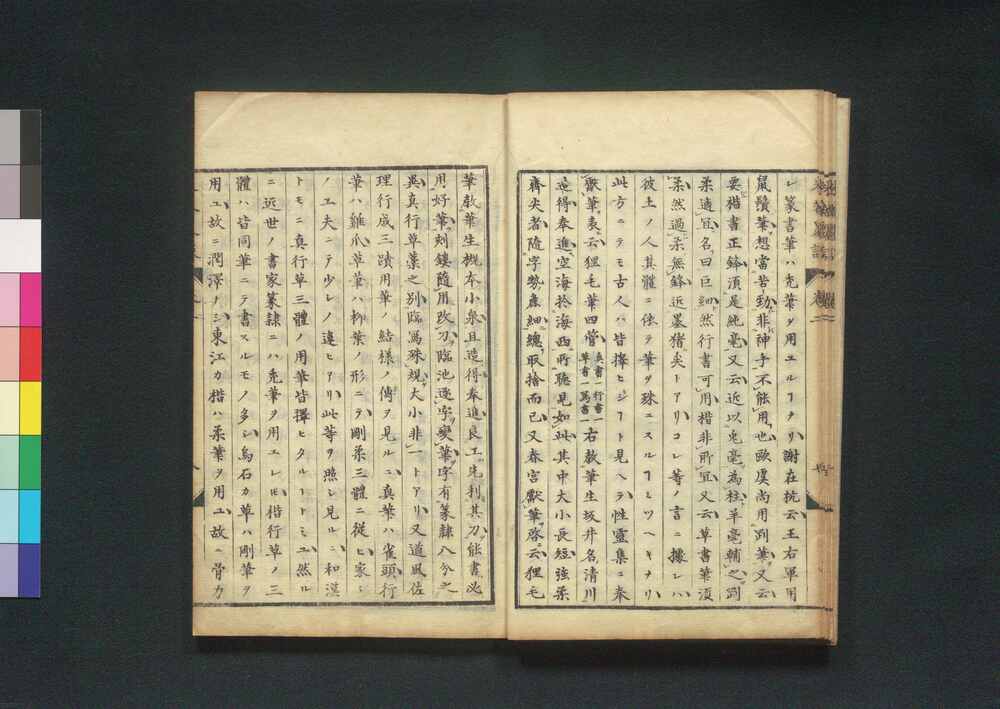 レ篆書筆ハ禿筆ヲ用エルヿアリ謝在杭云王右軍用
鼠鬚筆想當苦勁非神手不能用也歐虞尚用剛筆又云
要楷書正鋒須是純毫又云近以兎毫為柱羊毫輔之剛
柔適宜名曰巨細然行書可用楷非所宜又云草書筆須
柔然過柔無鋒近墨猪矣トアリコレ等ノ言ニ據レハ
彼土ノ人其體ニ依テ筆ヲ殊ニスルヿヒツヘキナリ
此方ニテモ古人ハ皆擇ヒシヿト見ヘテ性靈集ニ奉
獻筆表云狸毛筆四管真書一行書一草書一寫書一右教筆生坂井名清川
造得奉進空海於海西所聽見如此其中大小長短强柔
齊尖者隨字勢麁細總取捨而已又春宮獻筆啓云狸毛
筆教筆生槻本小泉且造得奉進良工先利其刀能書必
用好筆刻鏤隨用改刀臨池逐字變筆字有篆隸八分之
異真行草藁之別臨寫殊規大小非一トアリ又道風佐
理行成三蹟用筆ノ結樣ノ傳ヲ見ルニ真筆ハ雀頭行
筆ハ雞爪草筆ハ柳葉ノ形ニテ剛柔三體ニ從ヒ家々
ノ工夫ニテ少レノ違ヒアリ此等ヲ照シ見ルニ和漢
トモニ真行草三體ノ用筆皆擇ヒタルヿトミユ然ル
ニ近世ノ書家篆隸ニハ禿筆ヲ用エレ𪜈楷行草ノ三
體ハ皆同筆ニテ書スルモノ多シ烏石カ草ハ剛筆ヲ
用ユ故ニ潤澤ノシ東江カ楷ハ柔筆ヲ用ユ故ニ骨カ